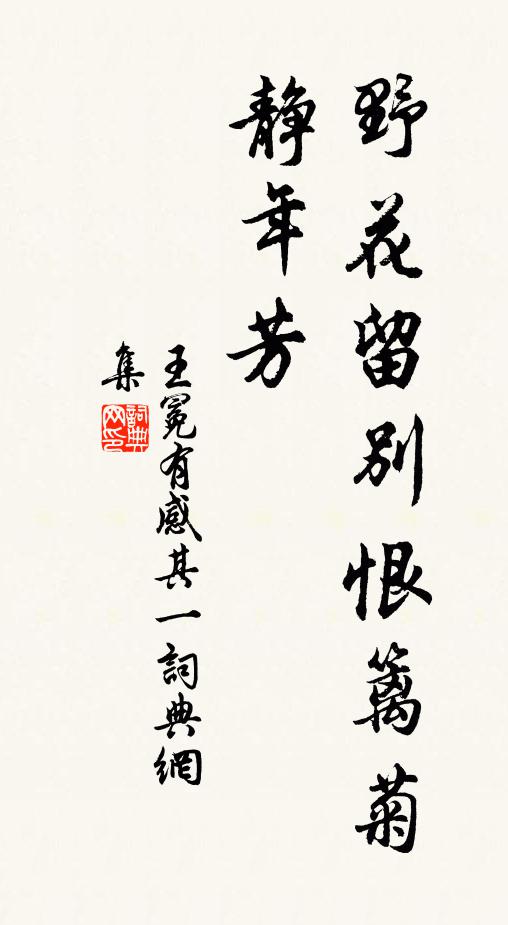 野花留別恨籬菊
靜年芳
王冕有感其一詞典網
集
詞典
网印